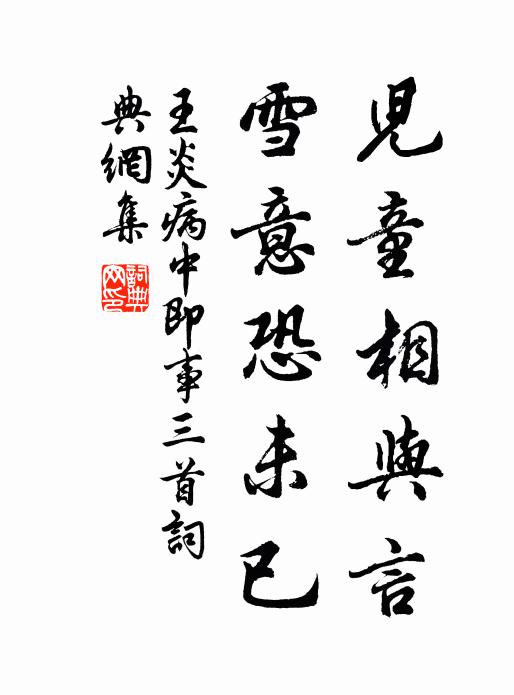 兒童相與言
雪意恐未已
王炎病中即事三首詞
典網集
詞典
网印